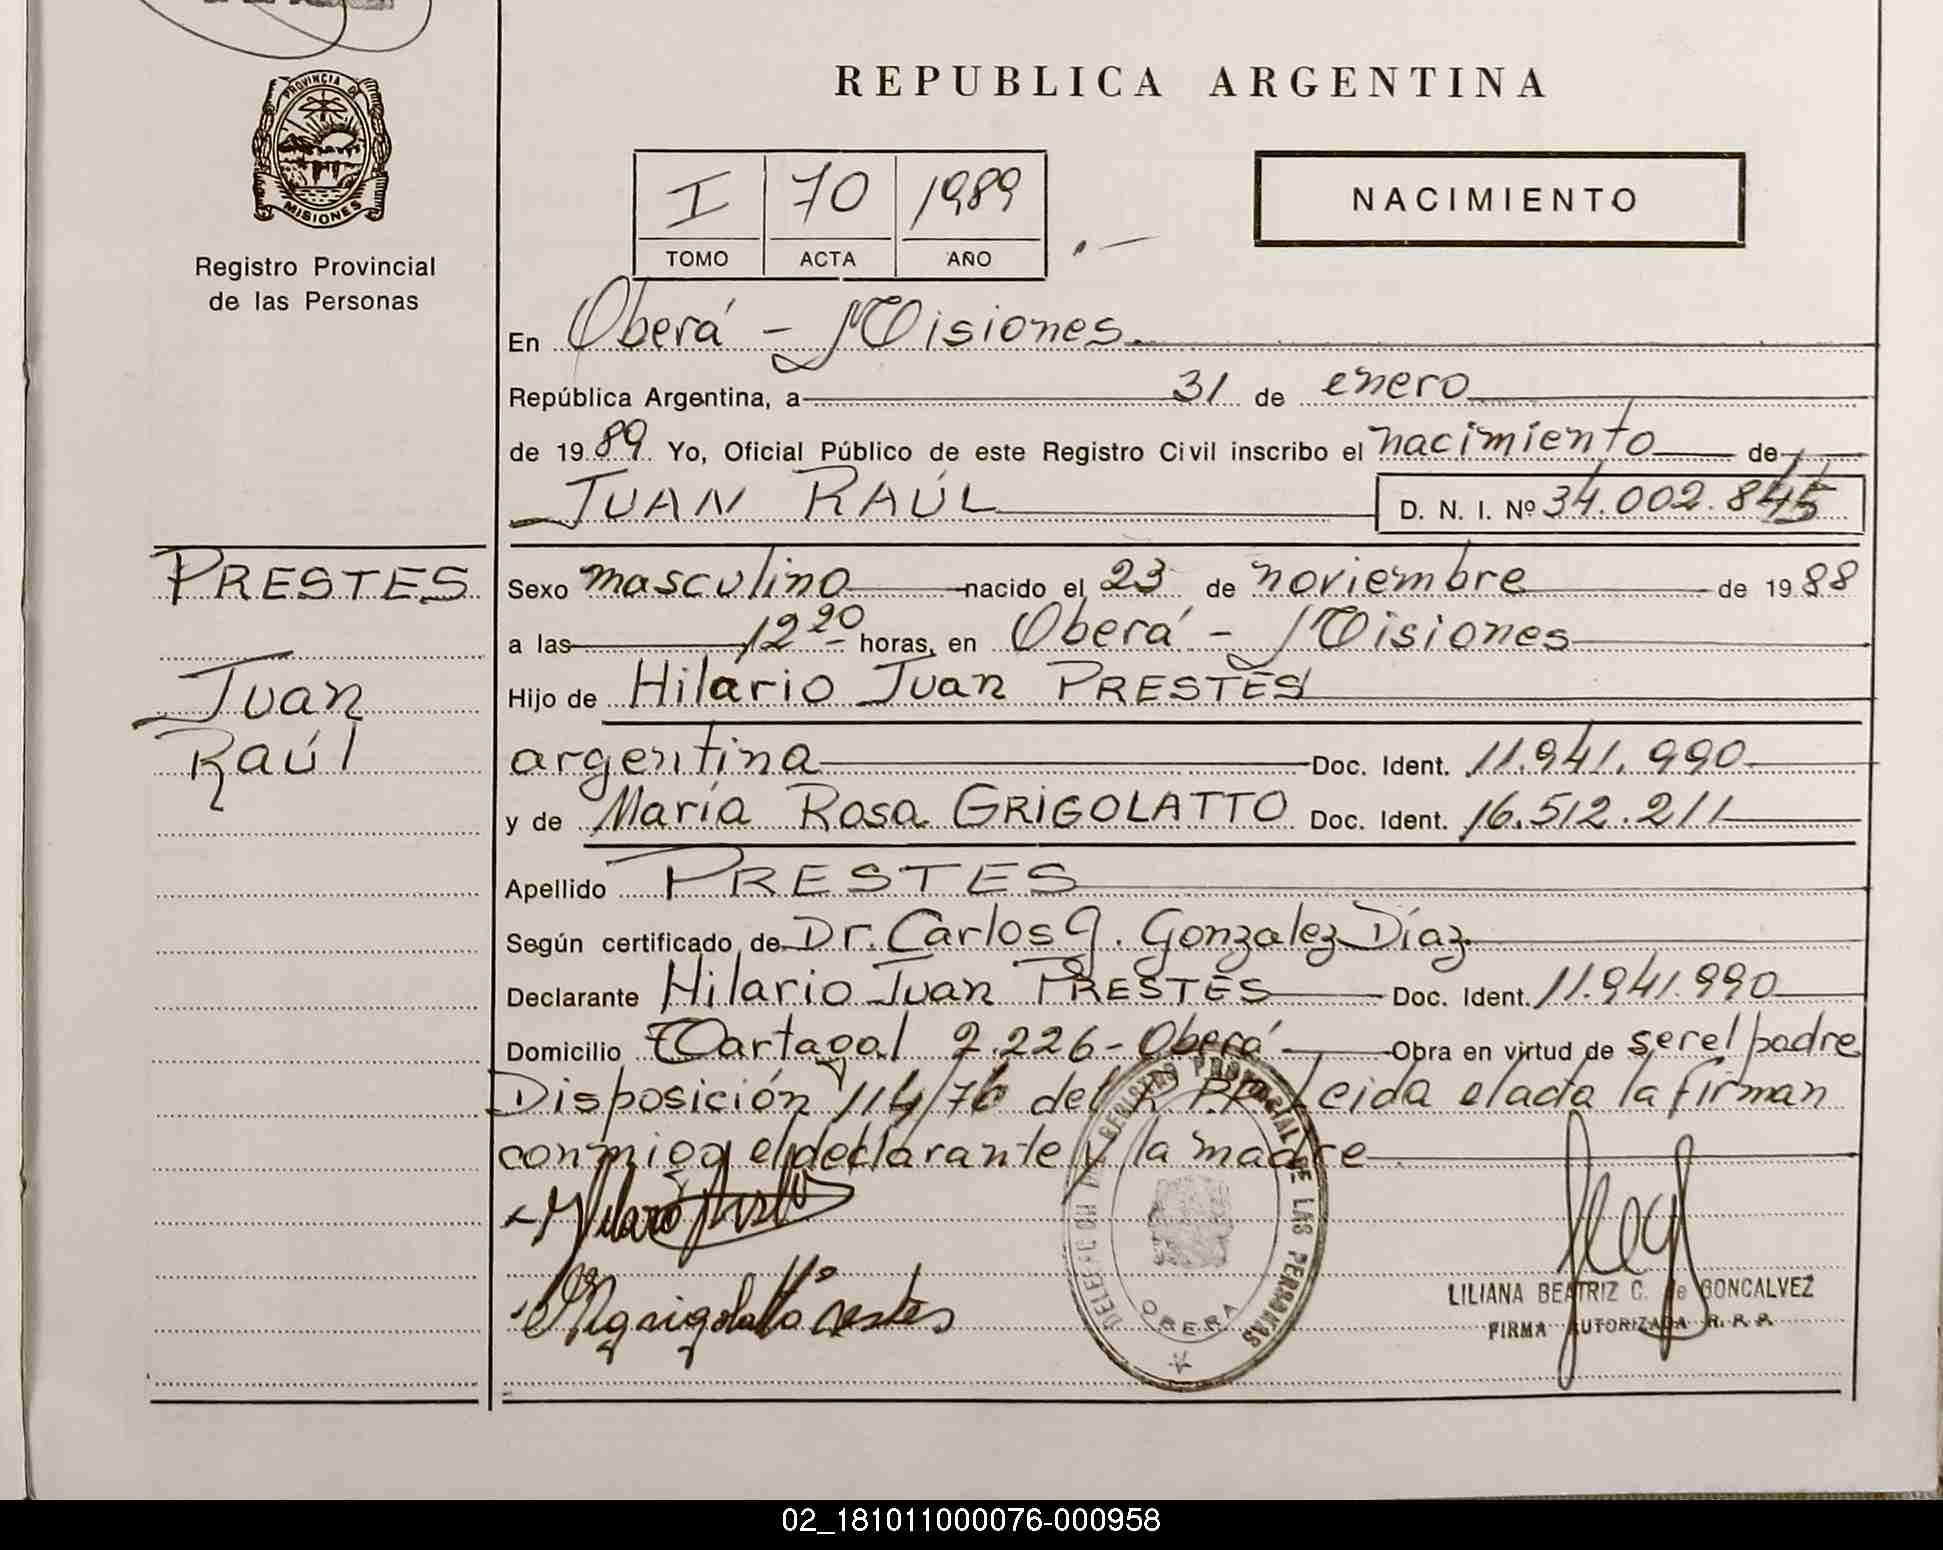 PROVINCIA DE
MISIONES
Registro Provincial
de las Personas
REPUBLICA ARGENTINA
I 70 1989
TOMO ACTA AÑO
NACIMIENTO
En Oberá - Misiones
República Argentina, a 31 de enero
de 1989 Yo, Oficial Público de este Registro Civil inscribo el nacimiento de
JUAN RAÚL D. N. I. Nº 34.002.845
PRESTES
Juan
Raúl
Sexo masculino nacido el 23 de noviembre de 1988
a las 12 20 horas, en Oberá - Misiones
Hijo de Hilario Juan PRESTES
argentina Doc. Ident. 11.941.990
y de María Rosa GRIGOLATTO Doc. Ident. 16.512.211
Apellido PRESTES
Según certificado de Dr. Carlos G. Gonzalez Díaz
Declarante Hilario Juan PRESTES Doc. Ident. 11.941.990
Domicilio Tartagal 2.226 - Oberá Obra en virtud de ser el padre
Disposición 114/76 del R.P.P. Leida el acta la firman
conmigo el declarante y la madre
DELEGACION DEL REGISTRO PROVINCIAL DE LAS PERSONAS
OBERA
LILIANA BEATRIZ C. de GONCALVEZ
FIRMA AUTORIZADA R. P. P.
02_181011000076-000958